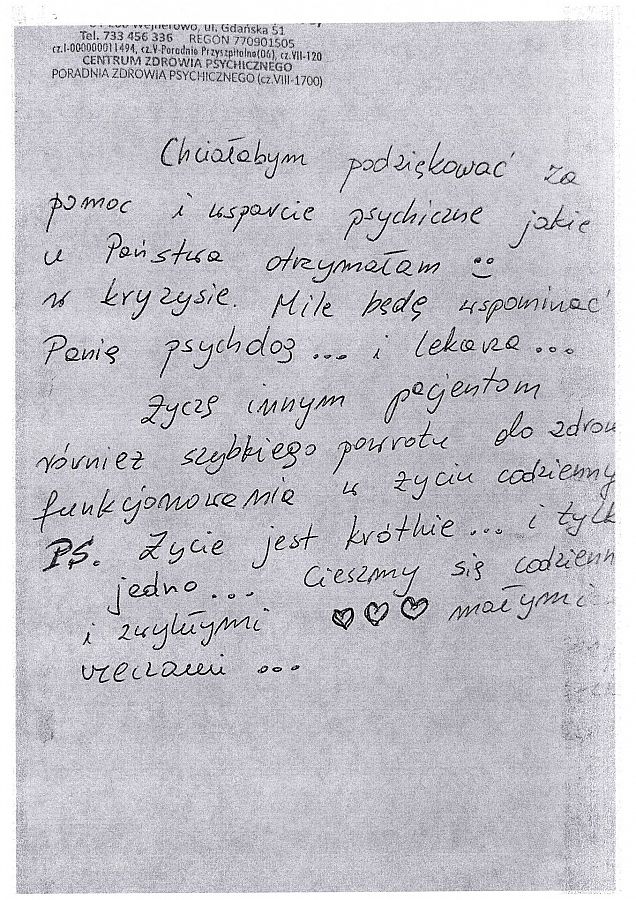 Wejherowo, ul. Gdańska 51
Tel. 733 456 336 REGON 770901505
cz.I-000000011494, cz.V-Poradnia Przyszpitalna(06), cz.VII-120
CENTRUM ZDROWIA PSYCHICZNEGO
PORADNIA ZDROWIA PSYCHICZNEGO (cz.VIII-1700)
Chciałabym podziękować za
pomoc i wsparcie psychiczne jakie
u Państwa otrzymałam
w kryzysie. Mile będę wspominać
Panią psycholog ... i lekarza ...
Życzę innym pacjentom
również szybkiego powrotu do zdrow
funkcjonowania w życiu codzienny
PS. Życie jest krótkie ... i tylk
jedno ... Cieszmy się codzienn
i zwykłymi ♡♡♡ małymi
rzeczami ...